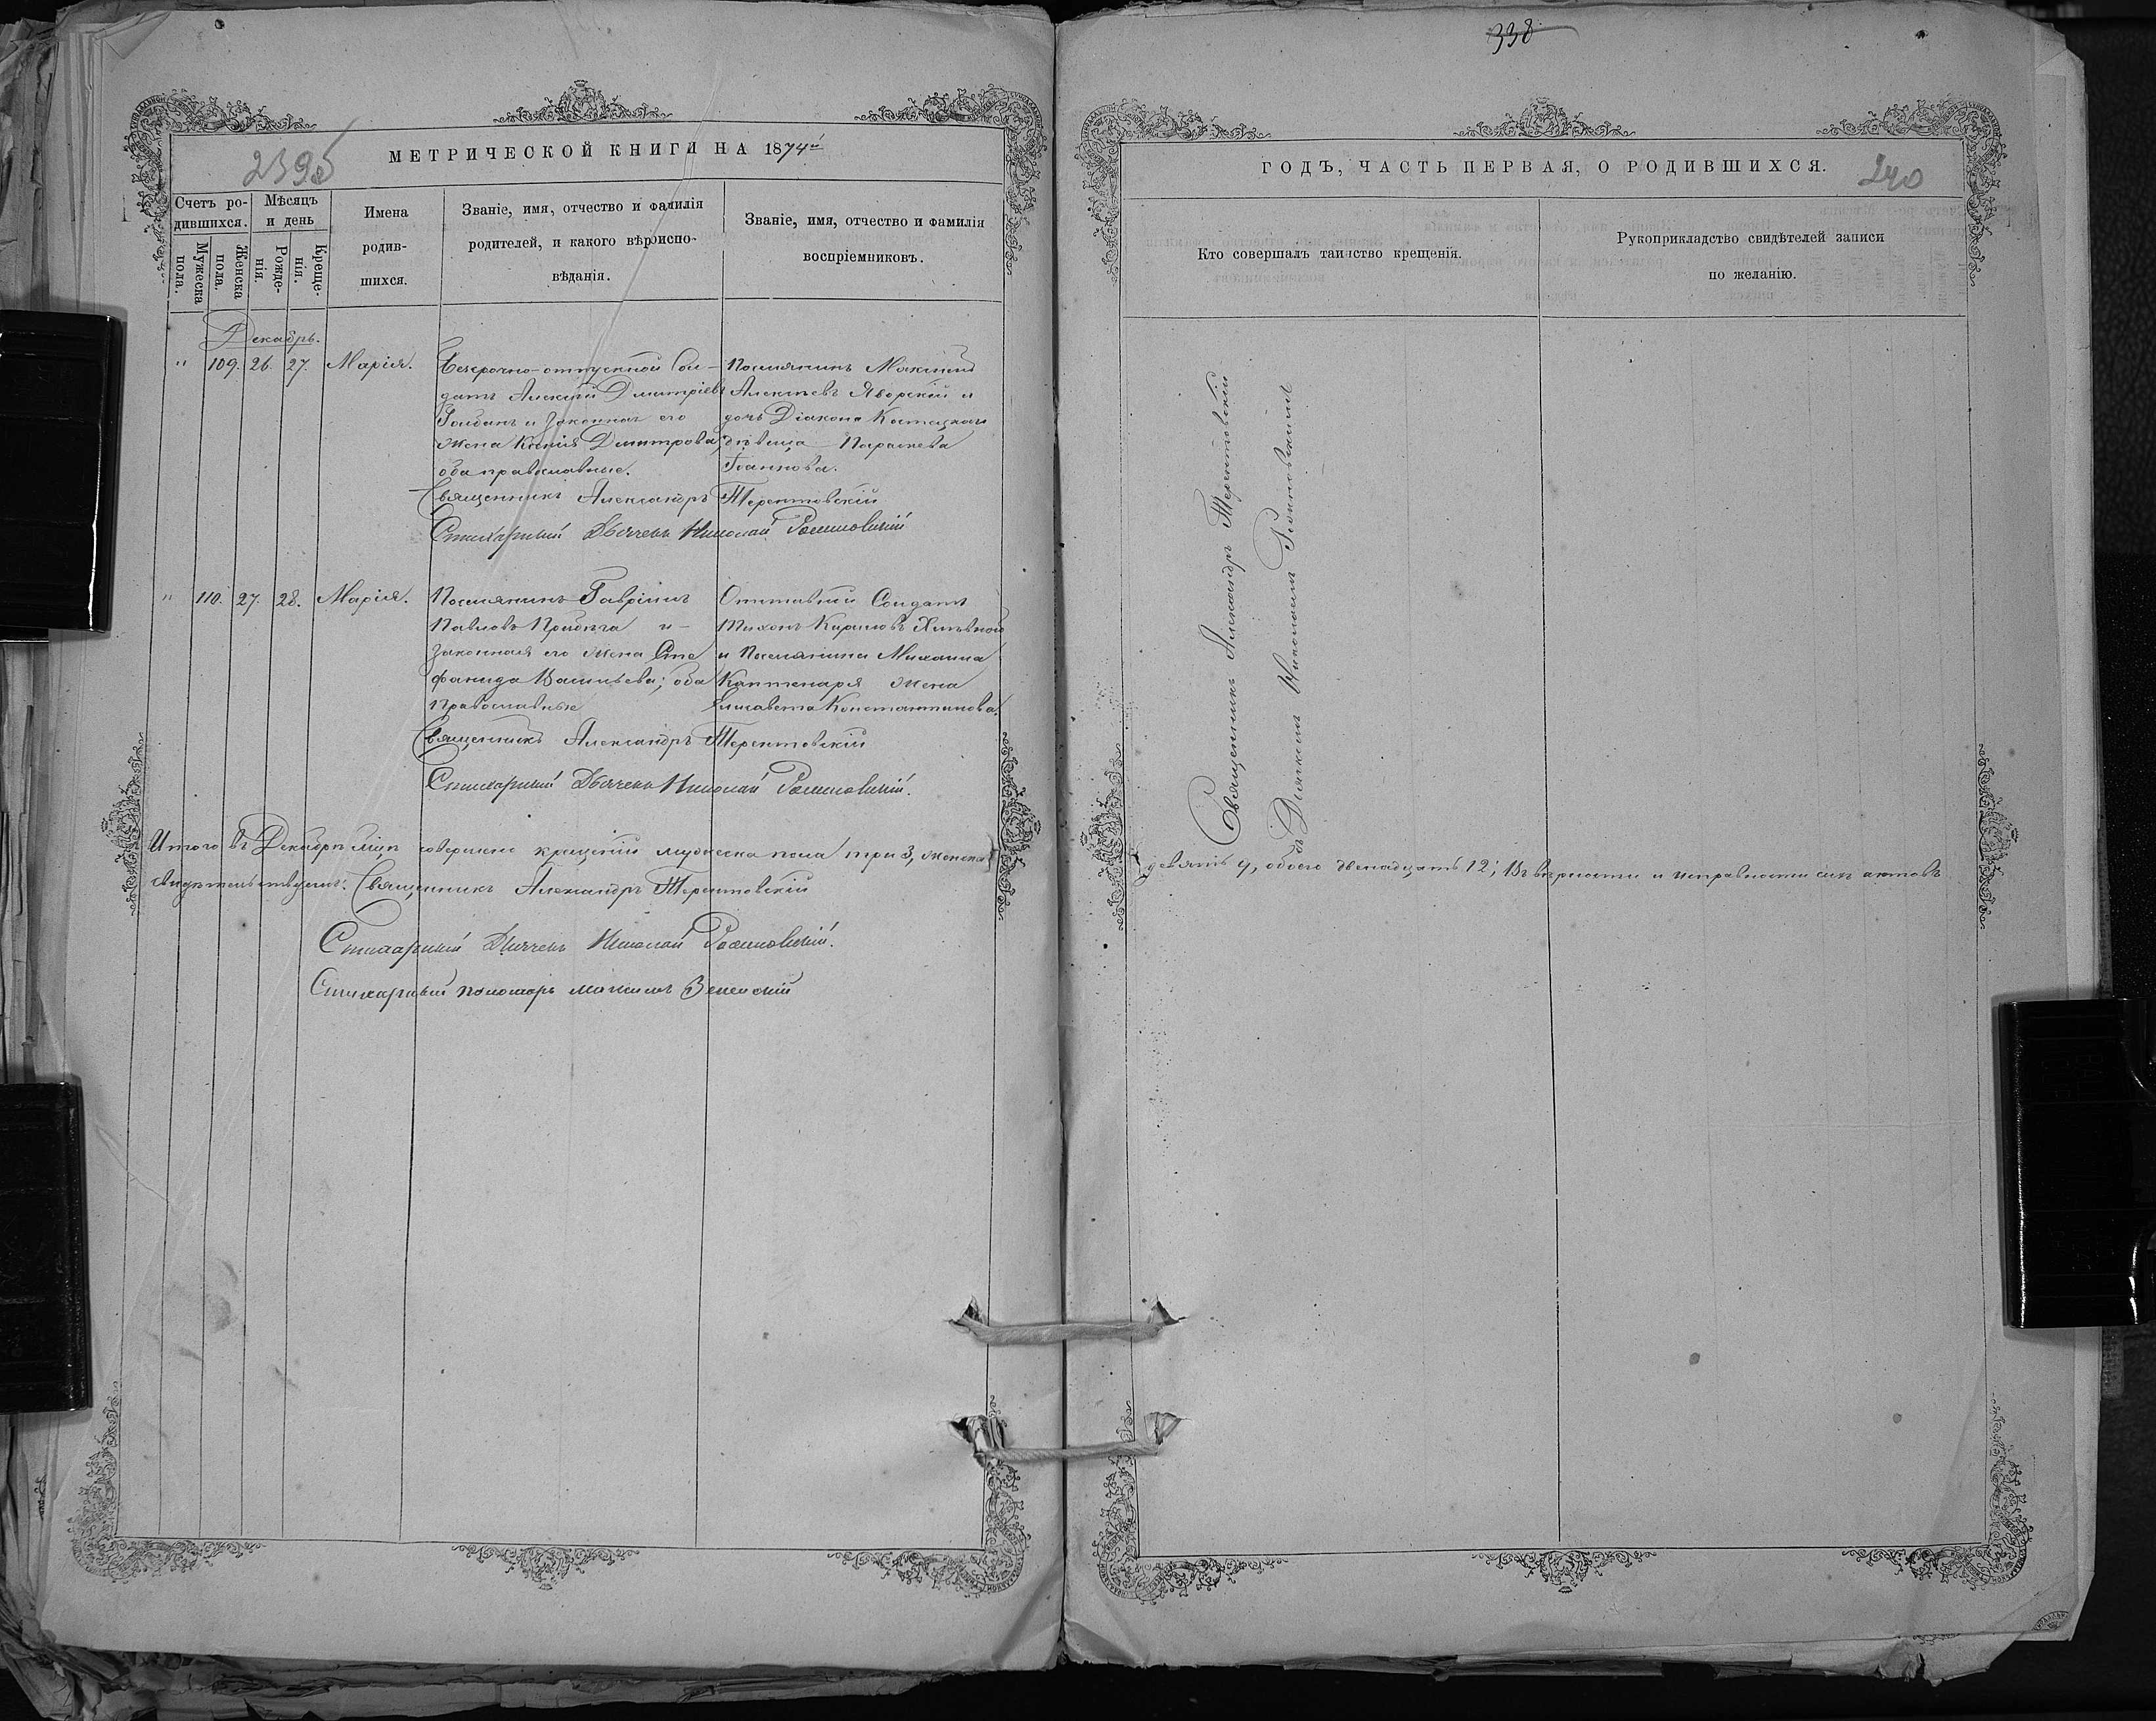 338
МЕТРИЧЕСКОЙ КНИГИ НА 1874й
239б
Счетъ ро-
дившихся.
Мужеска
пола.
Женска
пола.
Мѣсяцъ
и день
Рожде-
нія.
Креще-
нія.
Имена
родив-
шихся.
Званіе, имя, отчество и фамилія
родителей, и какого вѣроиспо-
вѣданія.
Званіе, имя, отчество и фамилія
воспріемниковъ.
Декабрь.
" 109. 26. 27. Марія.
Безсрочно-отпускной Сол-
датъ Алексій Дмитріевъ
и законная его
жена Дмитрова,
оба православные.
Поселянинъ Максимъ
Алексѣевъ Яворскій и
дочь Діакона
дѣвица Параскева
Іоаннова.
Священникъ Александръ Терентовскій
Стихарный Дьячекъ Николай
" 110. 27. 28. Марія.
Поселянинъ Гавріилъ
Павловъ и -
законная его жена Сте
фанида Васильева; оба
православные
Отставный Солдатъ
Тихонъ Кириловъ
и Поселянина Михаила
Каптенаря жена
Елисавета Константинова.
Священникъ Александръ Терентовскій
Стихарный Дьячекъ Николай
Итого въ Декабрѣ мцѣ совершено крещеній мужеска пола три 3, женска
свидѣтельствуемъ: Священникъ Александръ Терентовскій
Стихарный Дьячекъ Николай
Стихарный пономарь Максимъ
ГОДЪ, ЧАСТЬ ПЕРВАЯ, О РОДИВШИХСЯ.
240
Кто совершалъ таинство крещенія.
Рукоприкладство свидѣтелей записи
по желанію.
Священникъ Александръ Терентовскій
съ Дьячкомъ Николаемъ
девять 9, обоего двенадцать 12; Въ вѣрности и исправности сихъ актовъ